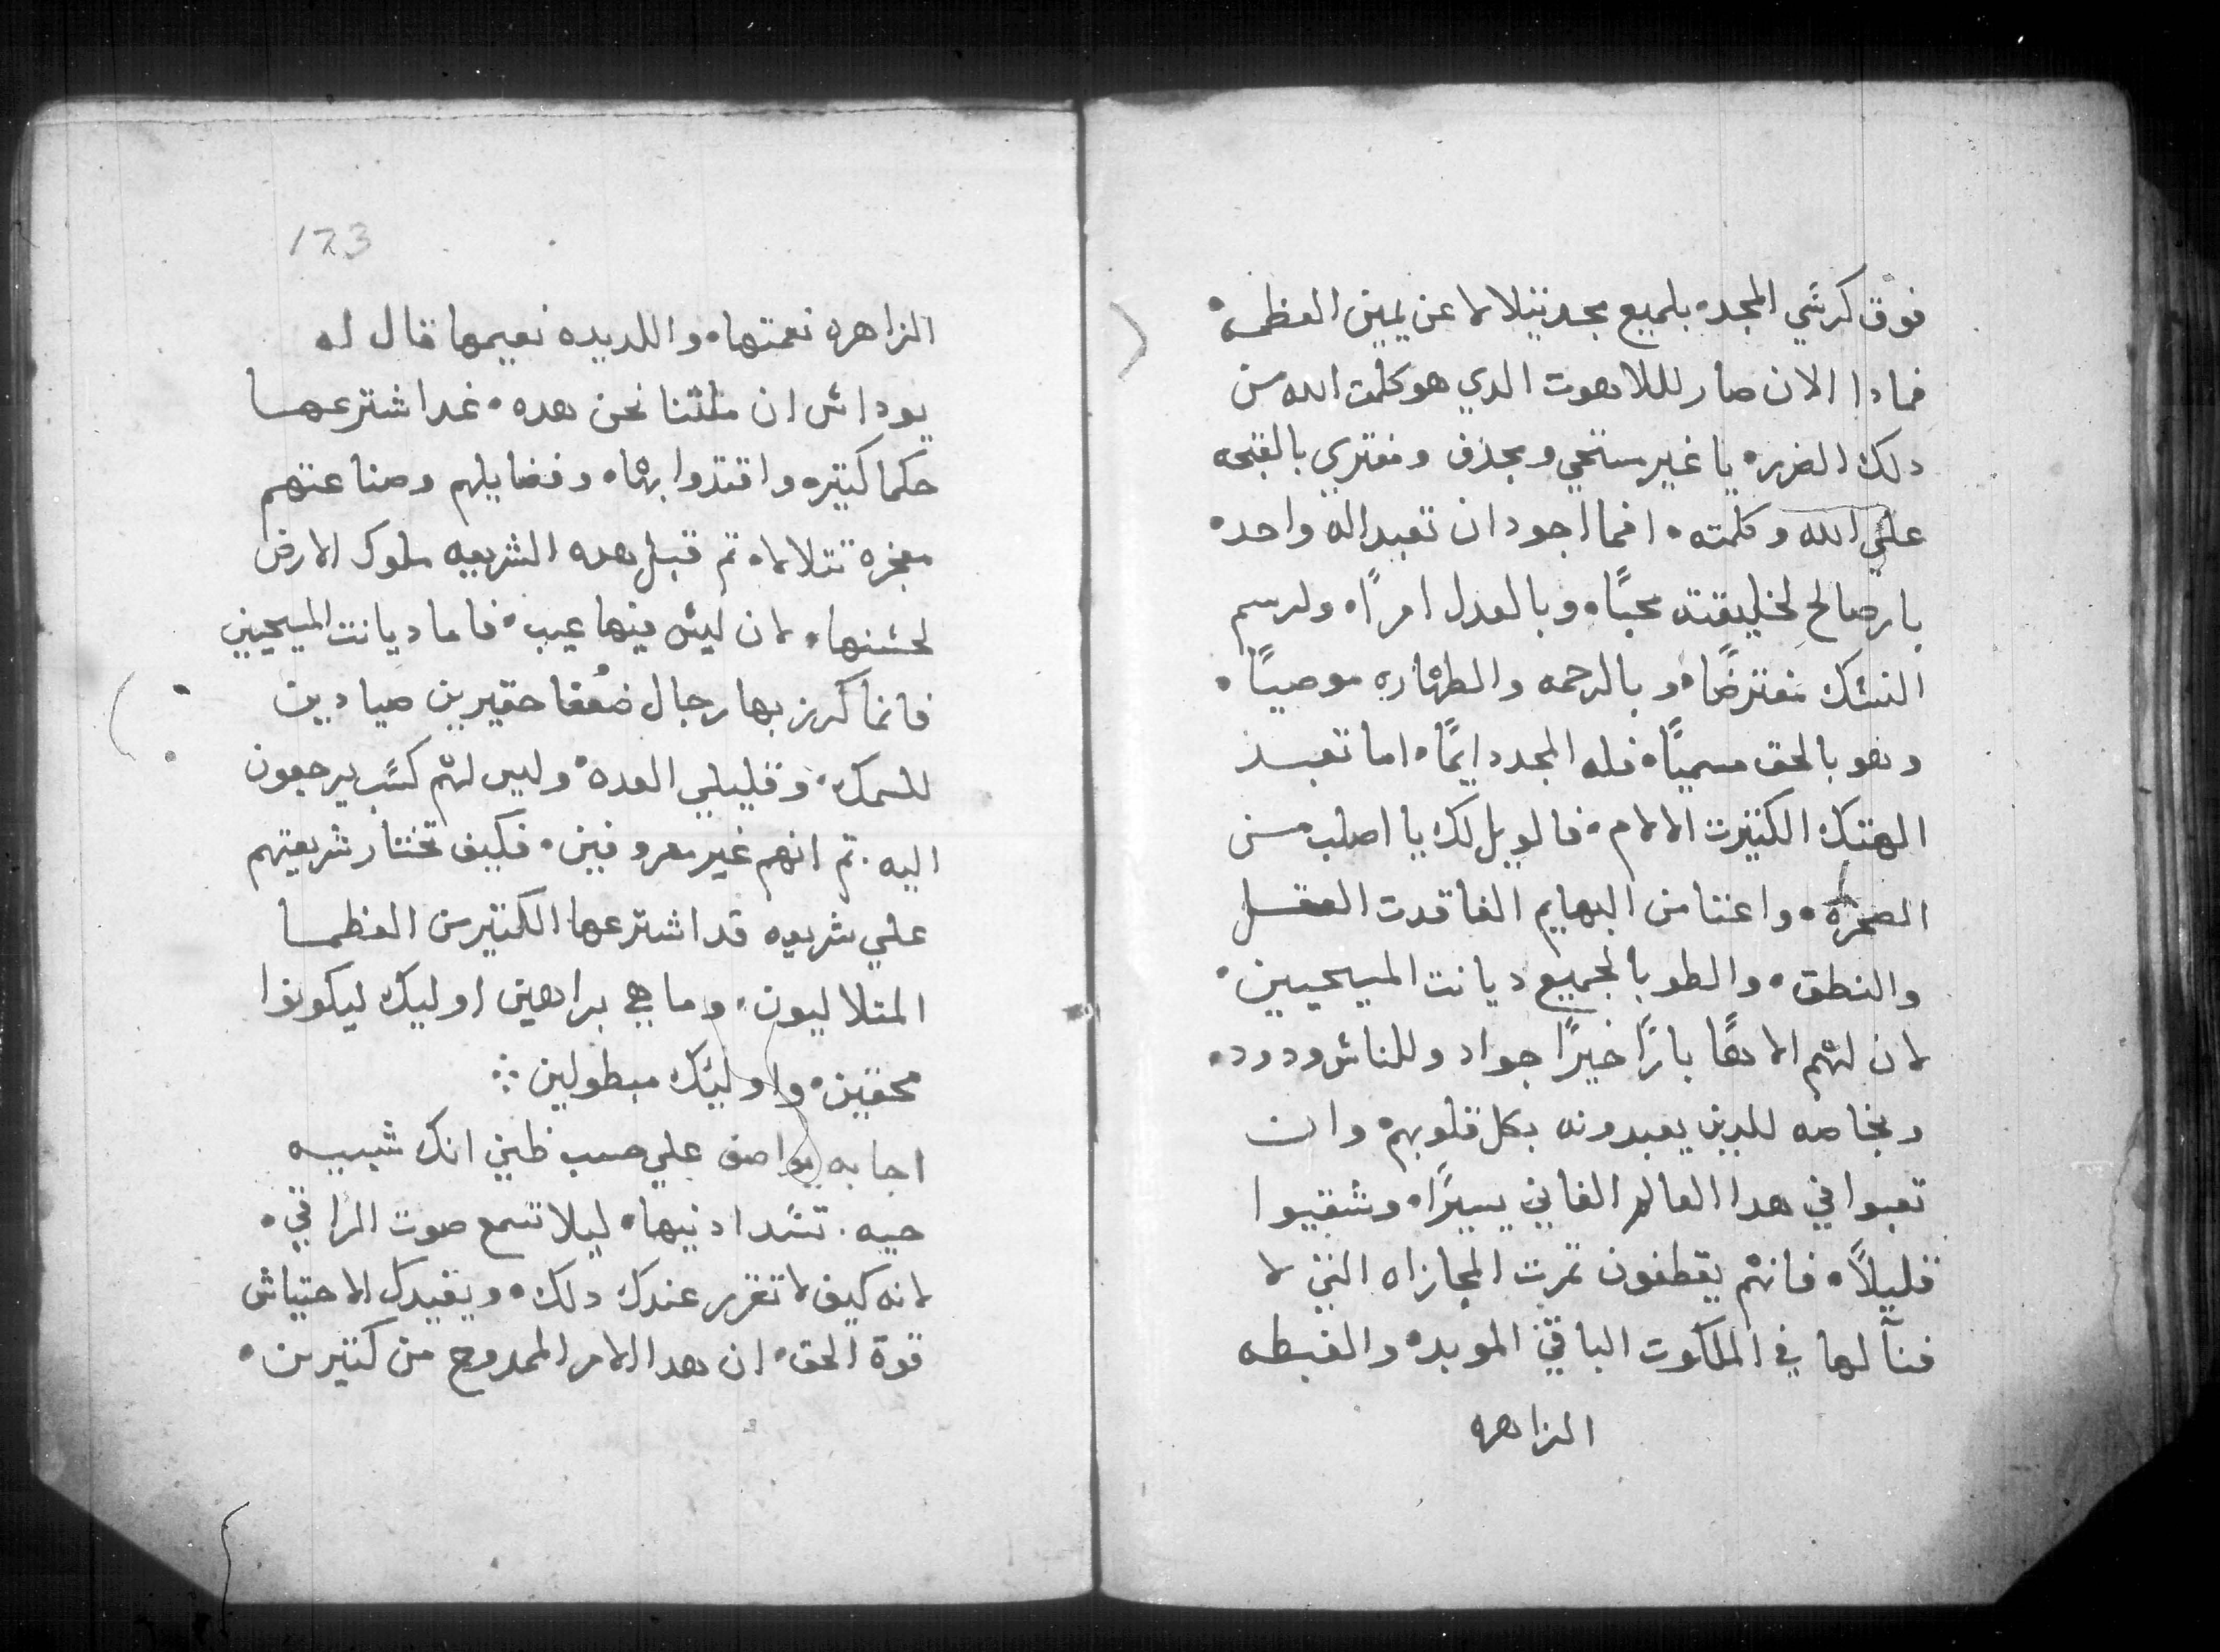 فوق كرسي المجد. بلميع مجد يتلالا عن يمين العظمه.
فمادا الان صار لللاهوت الدي هو كلمت الله من
دلك الضرر. يا غير مستحي ومجدف ومفتري بالقبحه
علي الله وكلمته. افما اجود ان تعبد اله واحد.
بار صالح لخليقته محبًا. وبالعدل امرًا. ولرسم
النسك مفترضًا. وبالرحمه والطهاره موصيًا.
وهو بالحق مسميًا. فله المجد دايمًا. اما تعبد
الهتك الكتيرت الالام. فالويل لك يا اصلب من
الصخره. واعتا من البهايم الفاقدت العقل
والنطق. والطوبا لجميع ديانت المسيحيين.
لان لهم الاهًا بارًا خيرًا جواد وللناس ودود.
وبخاصه للدين يعبدونه بكل قلوبهم. وان
تعبوا في هدا العالم الفاني يسيرًا. وشقيوا
قليلاً. فانهم يقطفون تمرت المجازاه التي لا
فنآ لها في الملكوت الباقي الموبد. والغبطه
الزاهره
123
الزاهره نعمتها. واللديده نعيمها قال له
يوداس ان ملتنا نحن هده. غدا شترعها
حكما كتيره واقتدوا بها. وفضايلهم وصناعتهم
معجزة تتلالا. تم قبل هده الشريعه ملوك الارض
لحسنها. لان ليس فيها عيب. فاما ديانت المسيحيين
فانما كرز بها رجال ضعفا حقيرين صيادين
للسمك. وقليلي العده. وليس لهم كسب يرجعون
اليه. تم انهم غير معروفين. فكيف تختار شريعتهم
علي شريعه قد اشترعها الكتير من العظما
المتلاليون. وما هي براهين اوليك ليكونوا
محقين. واوليك مبطولين:
اجابه يواصف علي حسب ظني انك شبيه
حيه. تسد ادنيها. ليلا تسمع صوت الراقي.
لانه كيف لا تقرر عندك دلك. ويفيدك الاحتياش
قوة الحق. ان هدا الامر الممدوح من كتيرين.